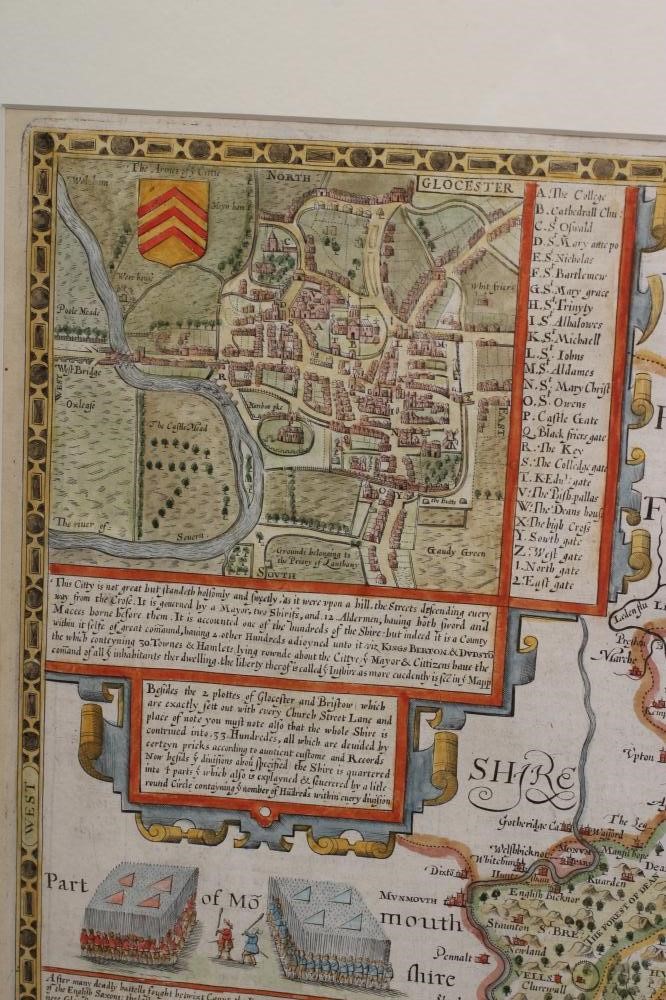 The Armes of ye Cittie
NORTH
GLOCESTER
Walcham
Meyn ham
Were house
Whit friers
Poole Meade
West Bridge
WEST
Oxlease
The Castle Mead
EAST
The Butts
The river of
Severn
Grounds belonging to
the Priory of Lanthony
Gaudy Green
SOUTH
A. The College
B. Cathedrall Chu:
C. St Oswald
D. St Mary ante po
E. St Nicholas
F. St Bartlemew
G. St Mary grace
H. St Trinyty
I. St Alhalowes
K. St Michaell
L. St Iohns
M. St Aldames
N. St Mary Christ
O. St Owens
P. Castle Gate
Q. Black friers gate
R. The Key
S. The Colledge gate
T. K Edw: gate
V. The Bish. pallas
W. The Deans hous
X. The high Cross
Y. South gate
Z. West gate
1. North gate
2. East gate
This Citty is not great but standeth holsomly and sweetly, as it were upon a hill. the Streets descending euery
way from the Crosse. It is gouerned by a Mayor, two Shirifs, and .12. Aldermen, hauing both sword and
Maces borne before them. It is accounted one of the hundreds of the Shire: but indeed it is a County
within it selfe of great comaund, hauing 2. other Hundreds adioyned unto it viz KINGS BERTON & DVDSTO
the which conteyning 30. Townes & Hamlets lying rounde about the Cittye ye Mayor & Cittizens haue the
comand of all ye inhabitants ther dwelling. the liberty therof is called ye Inshire as more euedently is seen in ye Mapp
Besides the 2 plottes of Glocester and Bristow: which
are exactly sett out with every Church Street Lane and
place of note you must note also that the whole Shire is
contriued into .33. Hundredes, all which are deuided by
certeyn pricks according to auntient custome and Records
Now besids ye diuisions aboue specified the Shire is quartered
into 4 parts ye which also is explayned & seuerered by a litle
round Circle contayning ye number of Hūdreds within euery diuision
WEST
SHIRE
Ledentus
Preston
Marche
Kemp
Vpton
Gotheridge Ca:
Wasford
The Lea
Welshbicknor
MONVM
Mansu hope
Whitchurch
Hunt sham
Ruarden
Dea
Dixto
English Bicknor
Part
of Mō
MVNMOVTH
mouth
shire
Staunton
S. BRE
THE FOREST OF DEAN
Newland
Pennalt
VELLS
Clurewall
After many deadly battells fought betwixt
of the English Saxons: